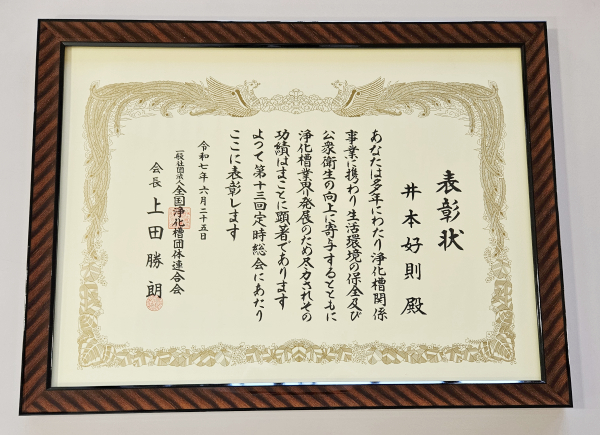 表彰状
井本好則 殿
あなたは多年にわたり浄化槽関係
事業に携わり生活環境の保全及び
公衆衛生の向上に寄与するとともに
浄化槽業界発展のため尽力されその
功績はまことに顕著であります
よって第十三回定時総会にあたり
ここに表彰します
令和七年六月二十五日
一般社団法人全国浄化槽団体連合会
会長 上田勝朗